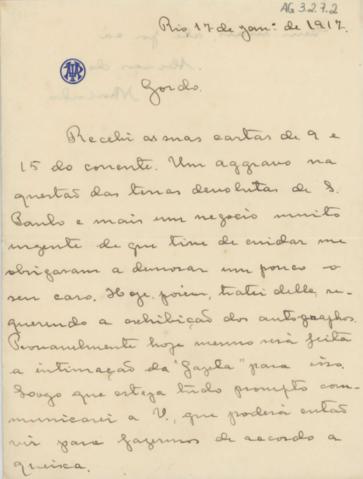 AG 3.2.7.2
Rio 17 de janº de 1917.
Gordo.
Recebi as suas cartas de 9 e
15 do corrente. Um aggravo na
questão das terras devolutas de S.
Paulo e mais um negocio muito
urgente de que tive de cuidar me
obrigaram a demorar um pouco o
seu caso. Hoje, porém, tratei delle, re-
querendo a exhibição dos autographos.
Provavelmente hoje mesmo será feita
a intimação da "Gazeta" para isso.
Logo que esteja tudo prompto com-
municarei a V., que poderá então
vir para fazermos de accordo a
queixa.